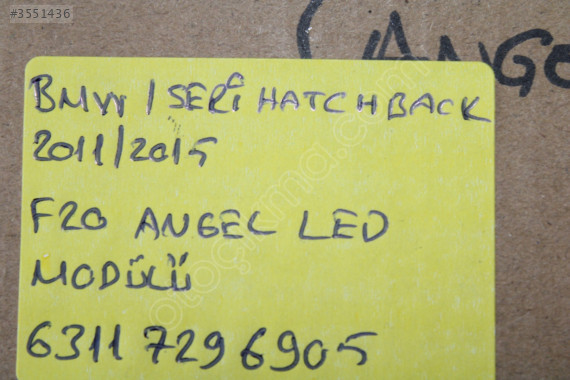 #3551436
(ANGE
BMW 1 SERİ HATCHBACK
2011/2015
F20 ANGEL LED
MODÜLÜ
6311 729 6905
otoçıkma.com